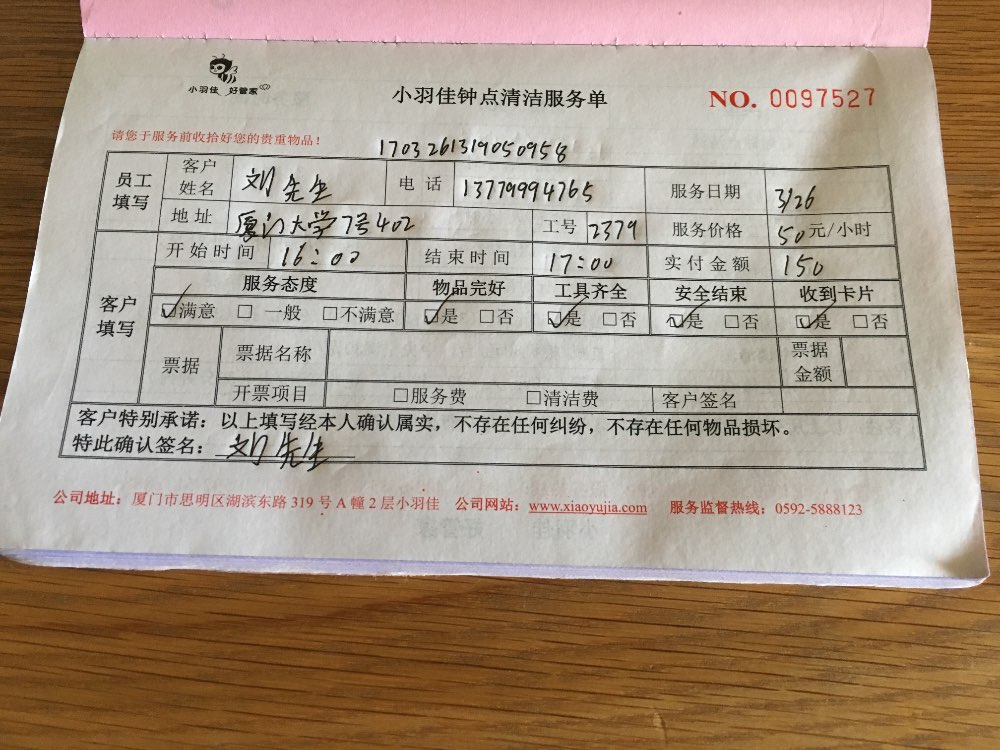 小羽佳 好管家
小羽佳钟点清洁服务单
NO. 0097527
请您于服务前收拾好您的贵重物品！
1703261319050958
员工填写 客户姓名 刘先生 电话 13779994765 服务日期 3/26
地址 厦门大学7号402 工号 2379 服务价格 50元/小时
客户填写 开始时间 16:00 结束时间 17:00 实付金额 150
服务态度 物品完好 工具齐全 安全结束 收到卡片
☑满意 □一般 □不满意 ☑是 □否 ☑是 □否 ☑是 □否 ☑是 □否
票据 票据名称 票据金额
开票项目 □服务费 □清洁费 客户签名
客户特别承诺：以上填写经本人确认属实，不存在任何纠纷，不存在任何物品损坏。
特此确认签名：刘先生
公司地址：厦门市思明区湖滨东路 319 号 A 幢 2 层小羽佳 公司网站：www.xiaoyujia.com 服务监督热线：0592-5888123